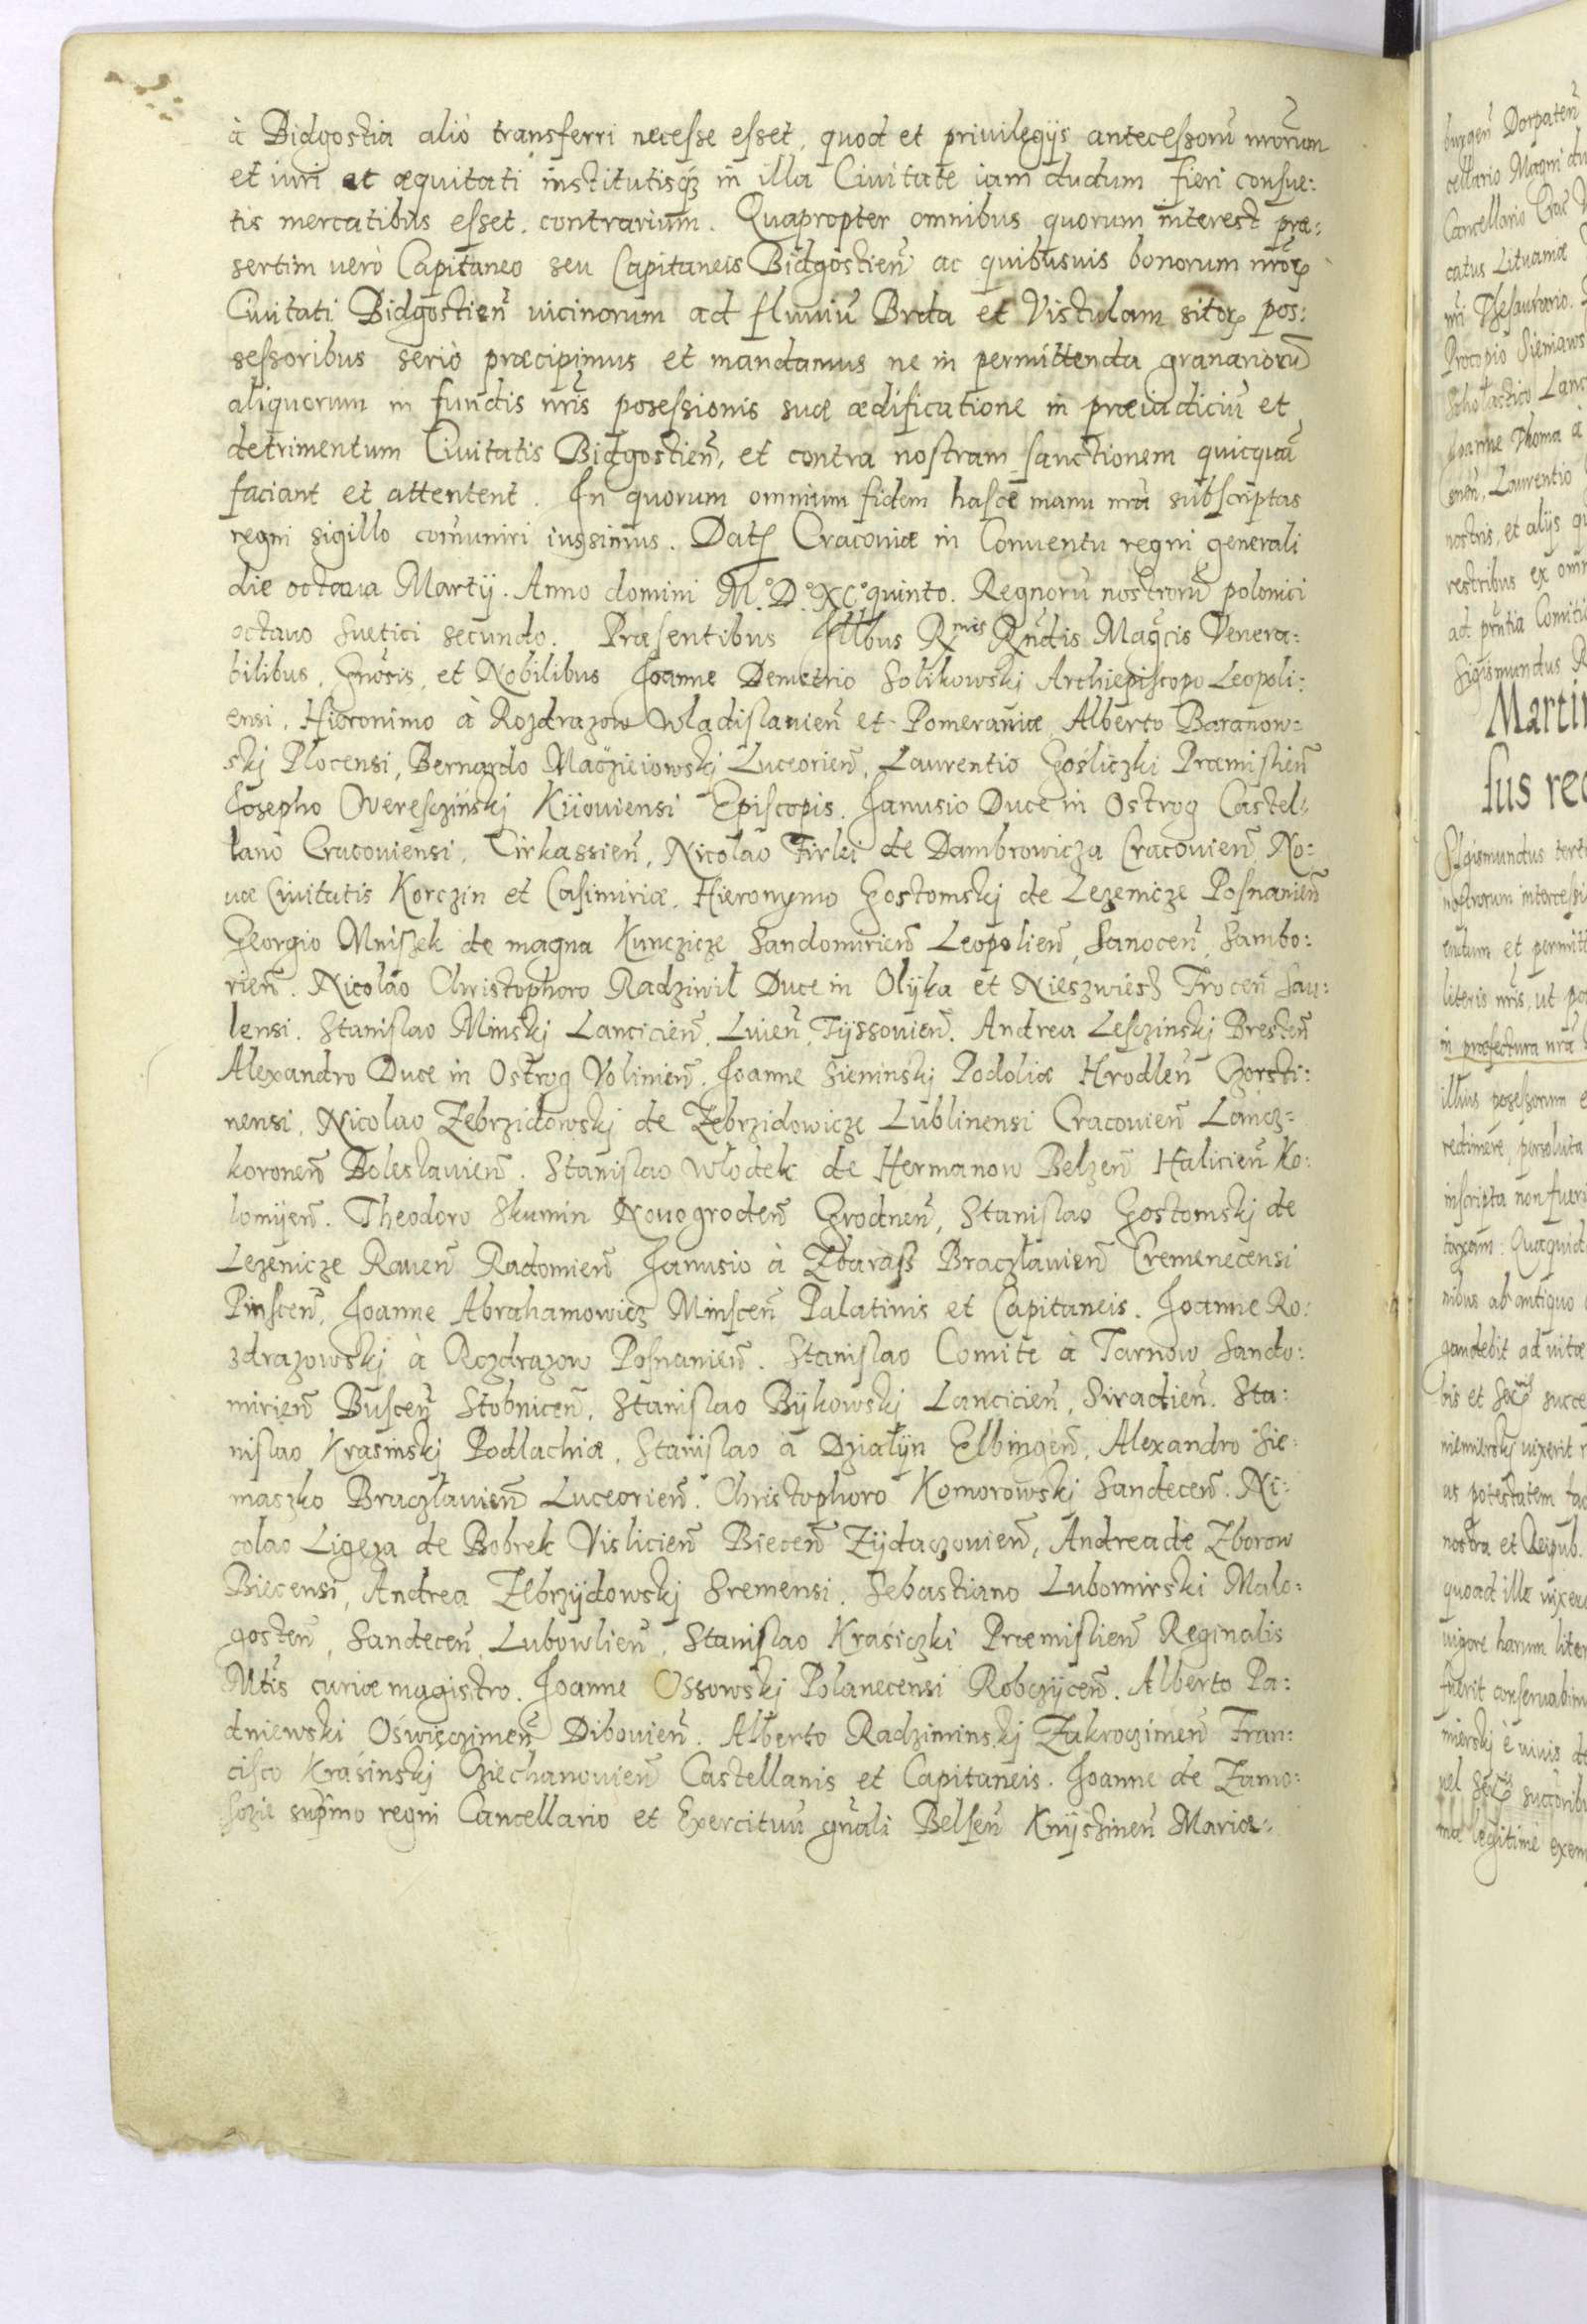 à Bidgostia aliò transferri necesse esset, quod et priuilegijs antecessorũ nrõrum
et iuri et æquitati institutisq́ in illa Ciuitate iam dudum fieri consue:
tis mercatibus esset contrarium. Quapropter omnibus quorum interest præ:
sertim uerò Capitaneo seu Capitaneis Bidgostien̄ ac quibusuis bonorum nrōꝝ
Ciuitati Bidgostien̄ uicinorum ad fluuiū Brda et Vistulam sitoꝝ pos:
sessoribus seriò præcipimus et mandamus ne in permittenda granariorū
aliquorum in fundis nr̄is posessionis suæ ædificatione in præiudiciū et
detrimentum Ciuitatis Bidgostien̄, et contra nostram sanctionem quicquā
faciant et attentent. In quorum omnium fidem hasce manu nrā subscriptas
regni sigillo com̄uniri iussimus. Datꝭ Cracouiæ in Conuentu regni generali
die octaua Martij. Anno domini M.° D.° XC.° quinto. Regnorū nostrorū polonici
octauo Suetici secundo. Præsentibus Illbus Rmis Rn̄dis Mag̃cis Venera:
bilibus, Gn̄osis, et Nobilibus Joanne Demetrio Solikowskj Archiepiscopo Leopoli:
ensi, Hieronimo à Rozdrazow Wladislauien̄ et Pomeraniæ, Alberto Baranow:
skj Plocensi, Bernardo Macżieiowskj Luceorien̄, Laurentio Gośliczki Præmislien̄
Josepho Vereszczińskj Kijouiensi Episcopis. Janusio Duce in Ostrog Castel:
lano Cracouiensi, Cirkassien̄, Nicolao Firlei de Dambrowicza Cracouien̄ No:
uæ Ciuitatis Korczin et Casimiriæ, Hieronymo Gostomskj de Lezenicze Posnanien̄
Georgio Mniszek de magna Kunczicze Sandomirien̄ Leopolien̄, Sanocen̄, Sambo:
rien̄. Nicolao Christophoro Radziwił Duce in Olijka et Nieszwiesz Trocen̄ Sau:
lensi. Stanislao Minskj Lancicien̄, Luien̄, Tijssouien̄. Andrea Lesczinskj Bresten̄
Alexandro Duce in Ostrog Volinien̄. Joanne Sieninskj Podoliæ Hrodlen̄ Horsti:
nensi, Nicolao Zebrzidowskj de Zebrzidowicze Lublinensi Cracouien̄ Lancz:
koronen̄ Boleslauien̄. Stanislao Włodek de Hermanow Belzen̄ Halicien̄ Ko:
lomijen̄. Theodoro Skumin Nouogroden̄ Grodnen̄, Stanislao Gostomskj de
Lezenicze Rauen̄ Radomien̄ Janusio à Zbaraß Bracżlauien̄ Cremenecensi
Pinscen̄, Joanne Abrahamowicz Minscen̄ Palatinis et Capitaneis. Joanne Ro:
zdrazowskj à Rozdrazow Posnanien̄. Stanislao Comite à Tarnow Sando:
mirien̄ Buscen̄ Stobnicen̄. Stanislao Bijkowskj Lancicien̄, Siradien̄. Sta:
nislao Krasinskj Podlachiæ, Stanislao à Działijn Elbingen̄, Alexandro Sie:
maszko Braczlauien̄ Luceorien̄. Christophoro Komorowskj Sandecen̄. Ni:
colao Ligęza de Bobrek Vislicien̄ Biecen̄ Zijdaczouien̄, Andrea de Zborow
Biecensi, Andrea Zebrzijdowskj Sremensi. Sebastiano Lubomirski Malo:
gosten̄, Sandecen̄, Lubowlien̄, Stanislao Krasiczki Præmislien̄ Reginalis
Mtis curiæ magistro. Joanne Ossowskj Polanecensi Robczijcen̄. Alberto Pa:
dniewski Oświęczimen̄ Dibouien̄. Alberto Radziminskj Zakroczimen̄ Fran:
cisco Kraśinskj Cziechanouien̄ Castellanis et Capitaneis. Joanne de Zamo:
sczie suprmo regni Cancellario et Exercituū gn̄ali Belsen̄ Knijshinen̄ Mariæ: